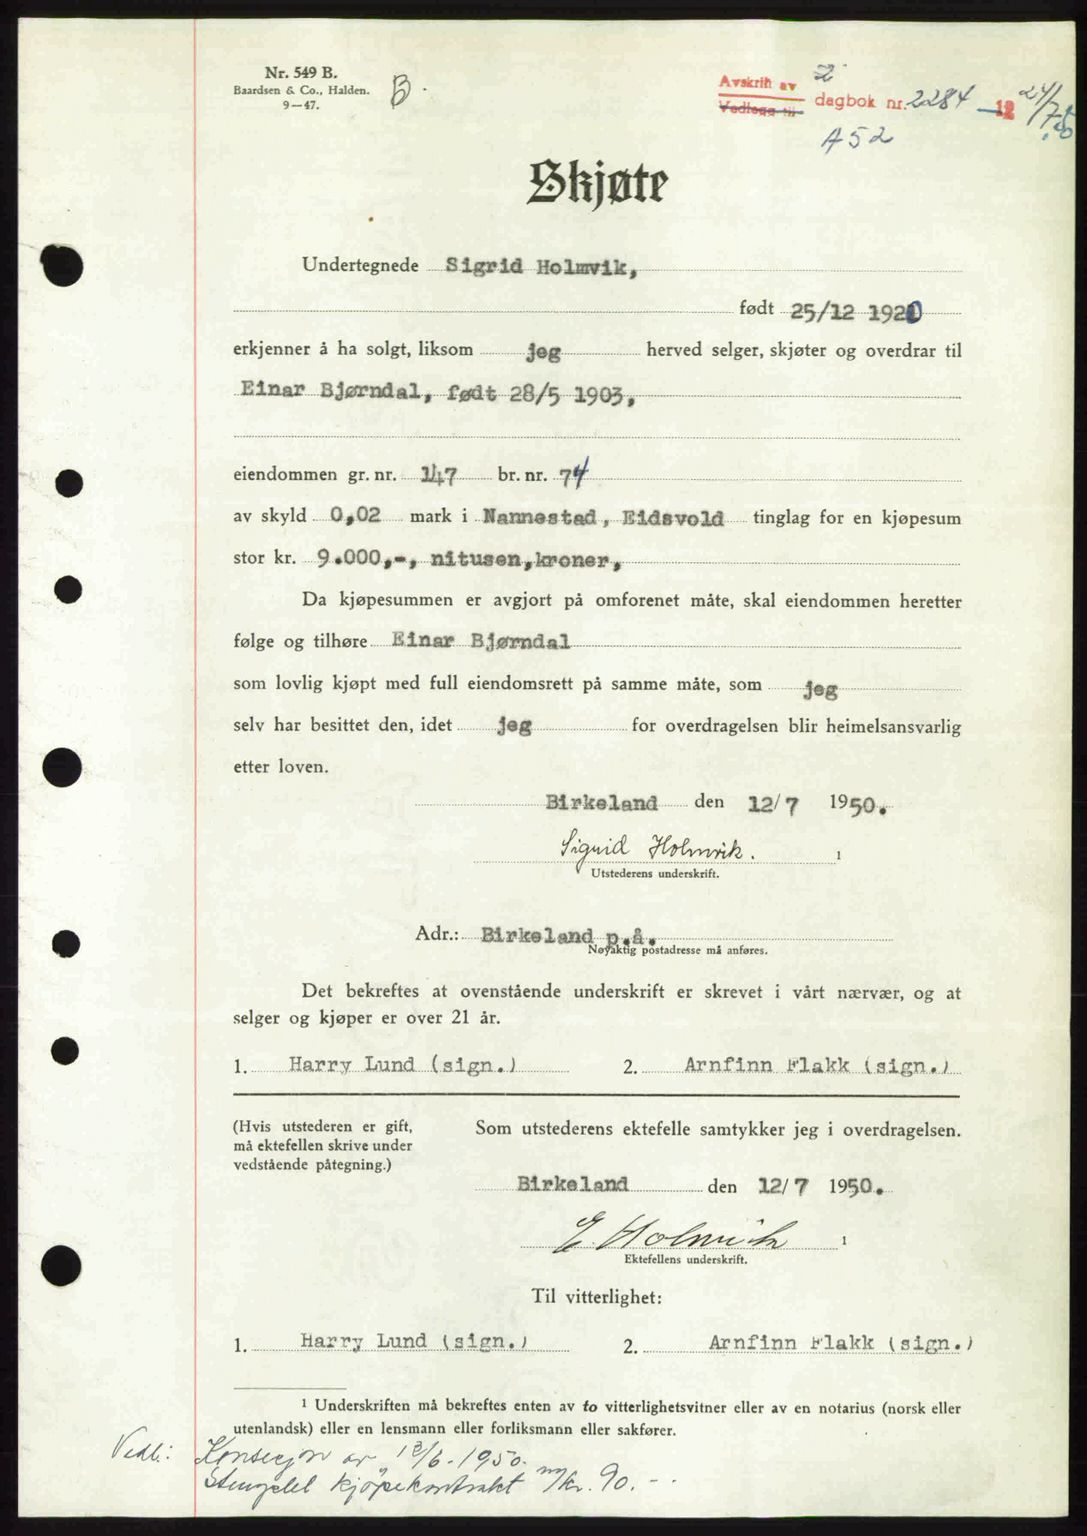 Nr. 549 B.
Baardsen & Co., Halden.
9—47.
B.
Avskrift av 2
Vedlegg til dagbok nr. 2284 — 19 24/7.50
A 52
Skjøte
Undertegnede Sigrid Holmvik,
født 25/12 1920
erkjenner å ha solgt, liksom jeg herved selger, skjøter og overdrar til
Einar Bjørndal, født 28/5 1903,
eiendommen gr. nr. 147 br. nr. 74
av skyld 0,02 mark i Nannestad, Eidsvold tinglag for en kjøpesum
stor kr. 9.000,-, nitusen,kroner,
Da kjøpesummen er avgjort på omforenet måte, skal eiendommen heretter
følge og tilhøre Einar Bjørndal
som lovlig kjøpt med full eiendomsrett på samme måte, som jeg
selv har besittet den, idet jeg for overdragelsen blir heimelsansvarlig
etter loven.
Birkeland den 12/7 1950.
Sigrid Holmvik. 1
Utstederens underskrift.
Adr.: Birkeland p.å.
Nøyaktig postadresse må anføres.
Det bekreftes at ovenstående underskrift er skrevet i vårt nærvær, og at
selger og kjøper er over 21 år.
1. Harry Lund (sign.) 2. Arnfinn Flakk (sign.)
(Hvis utstederen er gift,
må ektefellen skrive under
vedstående påtegning.)
Som utstederens ektefelle samtykker jeg i overdragelsen.
Birkeland den 12/7 1950.
E. Holmvik 1
Ektefellens underskrift.
Til vitterlighet:
1. Harry Lund (sign.) 2. Arnfinn Flakk (sign.)
1 Underskriften må bekreftes enten av to vitterlighetsvitner eller av en notarius (norsk eller
utenlandsk) eller en lensmann eller forliksmann eller sakfører.
Vedl.: Konsesjon av /6-1950.
Stemplet kjøpekontrakt m/kr. 90.--